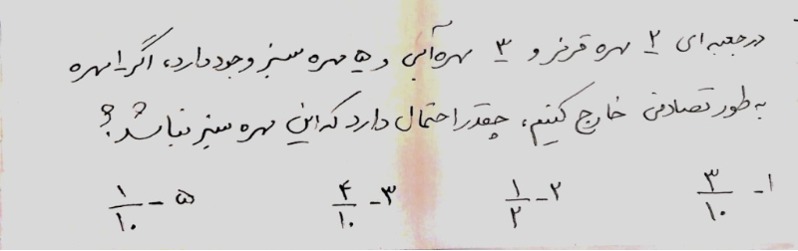 در جعبه ای ۲ مهره قرمز و ۳ مهره آبی و ۵ مهره سبز وجود دارد، اگر ۱ مهره
به طور تصادفی خارج کنیم، چقدر احتمال دارد که این مهره سبز نباشد؟
۱- ۳/۱۰ ۲- ۱/۲ ۳- ۴/۱۰ ۵- ۱/۱۰